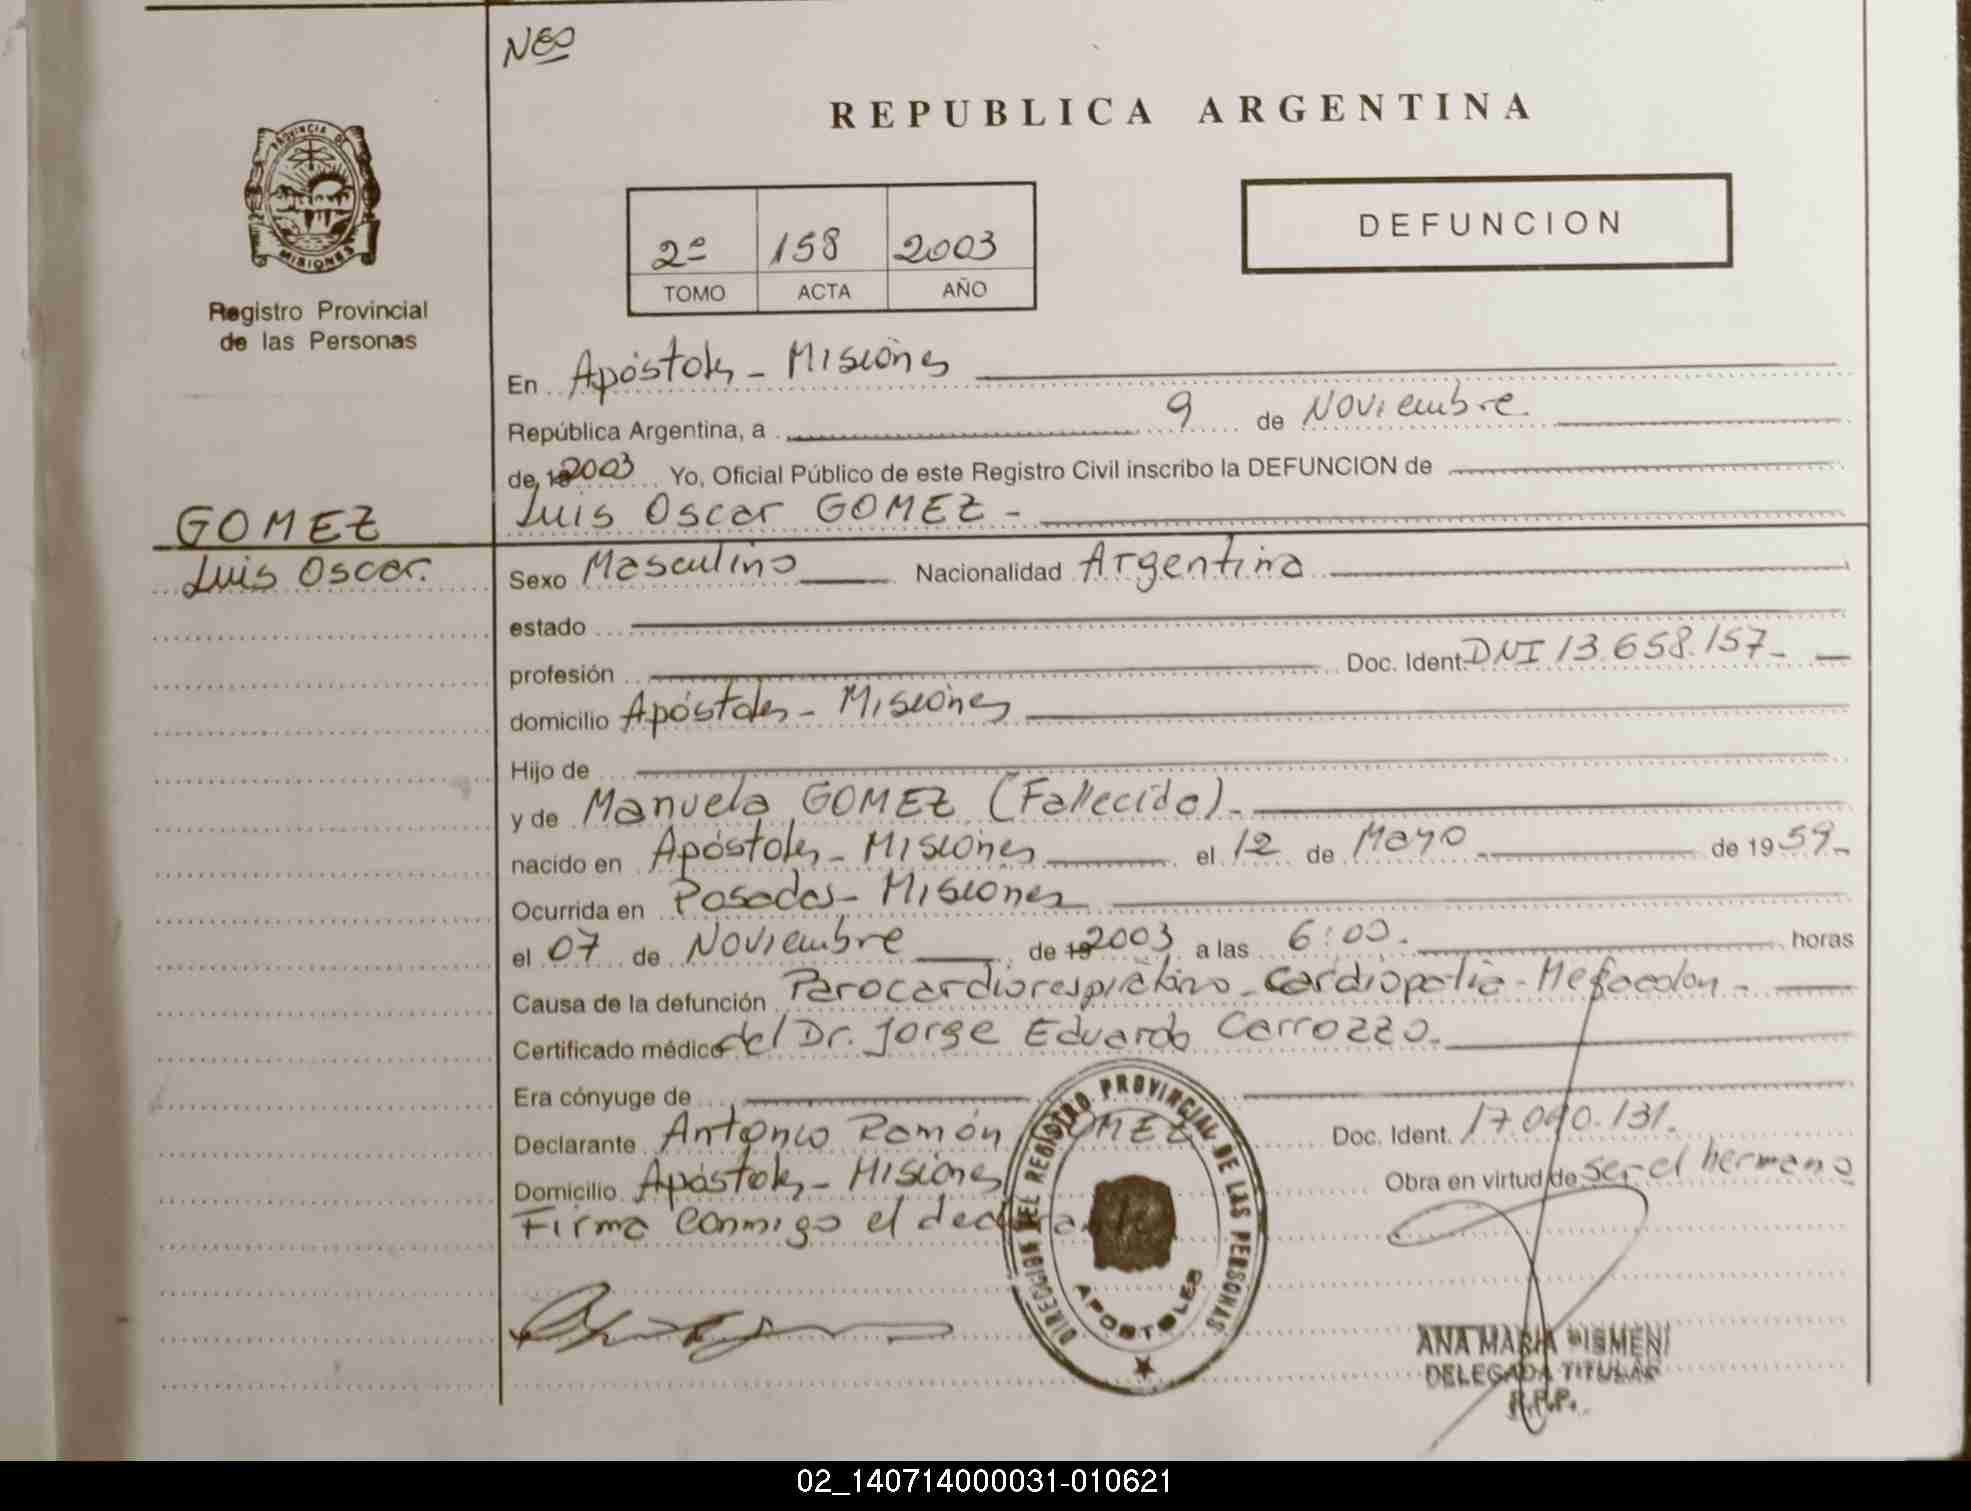 Neo
REPUBLICA ARGENTINA
PROVINCIA DE
MISIONES
2º 158 2003
TOMO ACTA AÑO
DEFUNCION
Registro Provincial
de las Personas
En Apóstoles - Misiones
República Argentina, a 9 de Noviembre.
de 2003 Yo, Oficial Público de este Registro Civil inscribo la DEFUNCION de
Luis Oscar GOMEZ -
GOMEZ
Luis Oscar.
Sexo Masculino Nacionalidad Argentina
estado
profesión Doc. Ident. DNI 13.658.157-
domicilio Apóstoles - Misiones
Hijo de
y de Manuela GOMEZ (Fallecida)-
nacido en Apóstoles - Misiones el 12 de Mayo de 1959-
Ocurrida en Posadas - Misiones
el 07 de Noviembre de 2003 a las 6:00. horas
Causa de la defunción Parocardiorespiratorio - Cardiopatia - Megacolon -
Certificado médico del Dr. Jorge Eduardo Carrozzo.
Era cónyuge de
Declarante Antonio Ramón GOMEZ Doc. Ident. 17.040.131.
Domicilio Apóstoles - Misiones Obra en virtud de ser el hermano
Firma conmigo el declarante
DIRECCION DEL REGISTRO PROVINCIAL DE LAS PERSONAS
APOSTOLES
ANA MARIA
DELEGADA TITULAR
R.P.P.
02_140714000031-010621